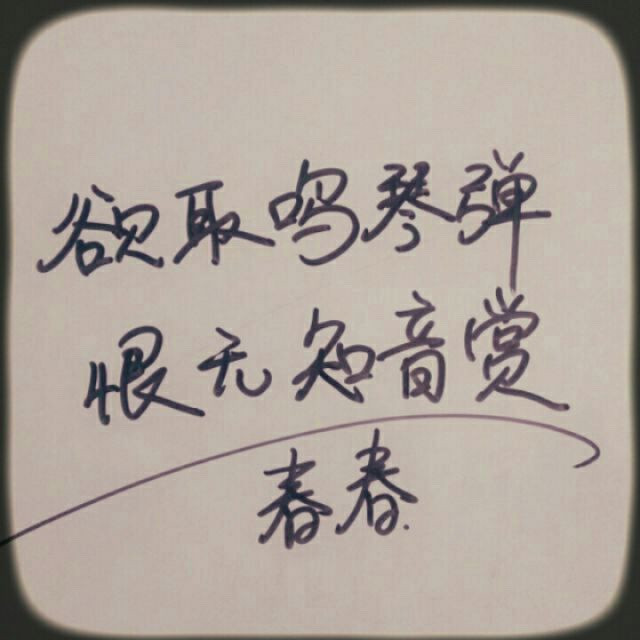 欲取鸣琴弹
恨无知音赏
春春.